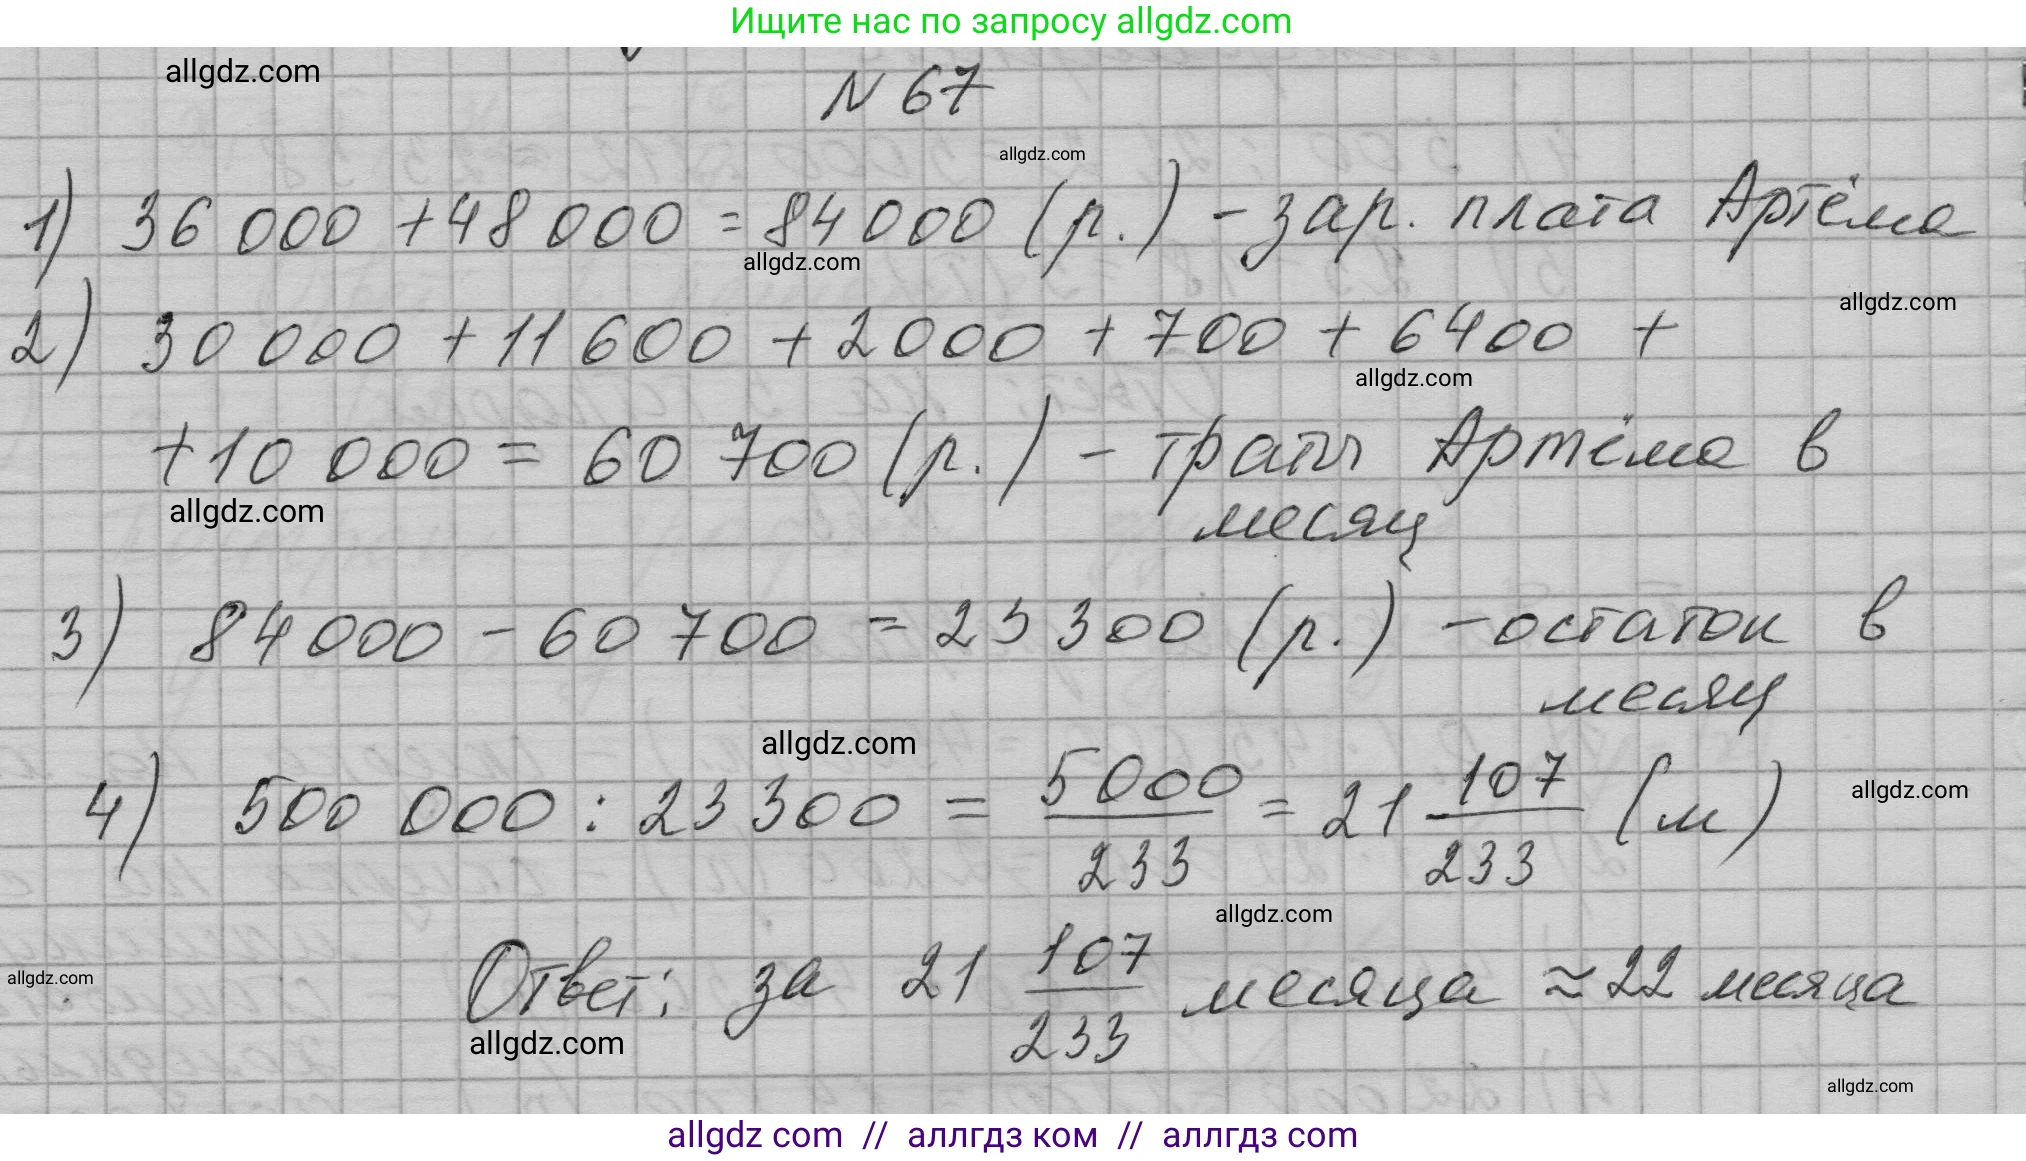 Ищите нас по запросу allgdz.com
allgdz.com
N 67
allgdz.com
1) 36 000 + 48 000 = 84 000 (р.) - зар. плата Артёма
allgdz.com
allgdz.com
2) 30 000 + 11 600 + 2000 + 700 + 6400 +
allgdz.com
+ 10 000 = 60 700 (р.) - траты Артёма в
месяц
allgdz.com
3) 84 000 - 60 700 = 23 300 (р.) - остаток в
месяц
allgdz.com
4) 500 000 : 23 300 = 5000/233 = 21 107/233 (м)
allgdz.com
allgdz.com
Ответ: за 21 107/233 месяца ≈ 22 месяца
allgdz.com
allgdz.com
allgdz.com
allgdz com // аллгдз ком // аллгдз com